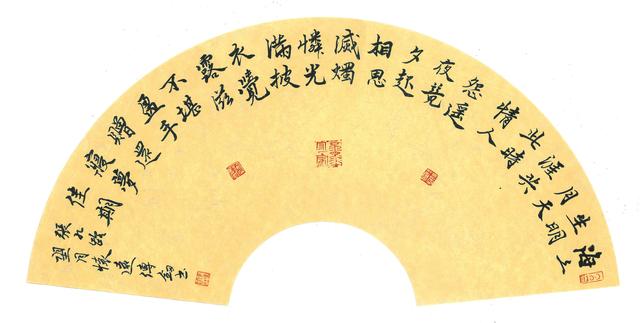 海上
生明
月天
涯共
此时
情人
怨遥
夜竟
夕起
相思
滅燭
憐光
滿披
衣覺
露滋
不堪
盈手
贈還
寢夢
佳期
張九龄
望月懷遠傅书